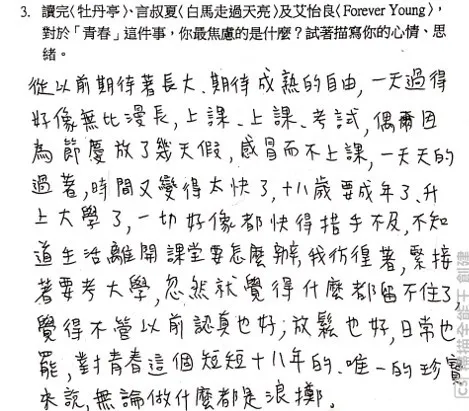 3. 讀完〈牡丹亭〉、言叔夏〈白馬走過天亮〉及艾怡良〈Forever Young〉，
對於「青春」這件事，你最焦慮的是什麼？試著描寫你的心情、思
緒。
從以前期待著長大、期待成熟的自由，一天過得
好像無比漫長，上課、上課、考試，偶爾因
為節慶放了幾天假，感冒而不上課，一天天的
過著，時間又變得太快了，十八歲要成年了、升
上大學了，一切好像都快得措手不及，不知
道生活離開課堂要怎麼辦，我彷徨著，緊接
著要考大學，忽然就覺得什麼都留不住了，
覺得不管以前認真也好；放鬆也好，日常也
罷，對青春這個短短十八年的、唯一的珍寶
來說，無論做什麼都是浪擲。
掃描全能王 創建